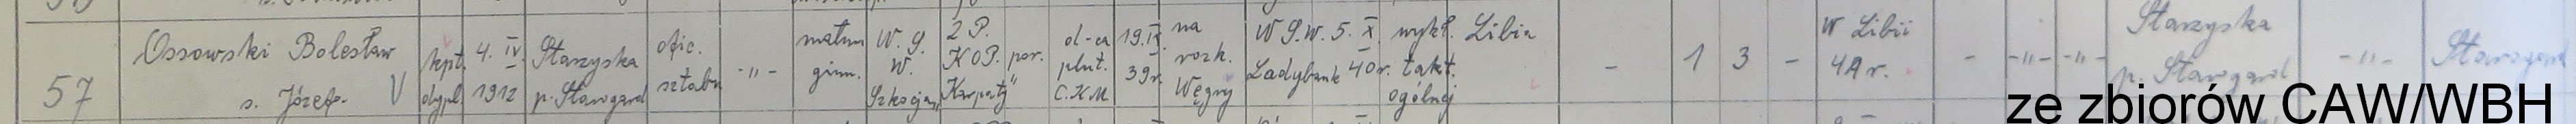 57
Ossowski Bolesław
s. Józefa V
kpt.
dypl.
4. IV.
1912
Starzyska
p. Starogard
ofic.
sztabu
-"-
matura
gimn.
W. S.
W.
Szkocja
2 P.
KOP. por.
"Karpaty"
d-ca
plut.
C.K.M
19.IX.
39r.
na
rozk.
Węgry
W S.W. 5. X.
Ladybank 40r.
wykł.
takt.
ogólnej
Libia
-
1
3
-
W Libii
4A r.
-
-"-
-"-
Starzyska
p. Starogard
-"-
Starogard
ze zbiorów CAW/WBH